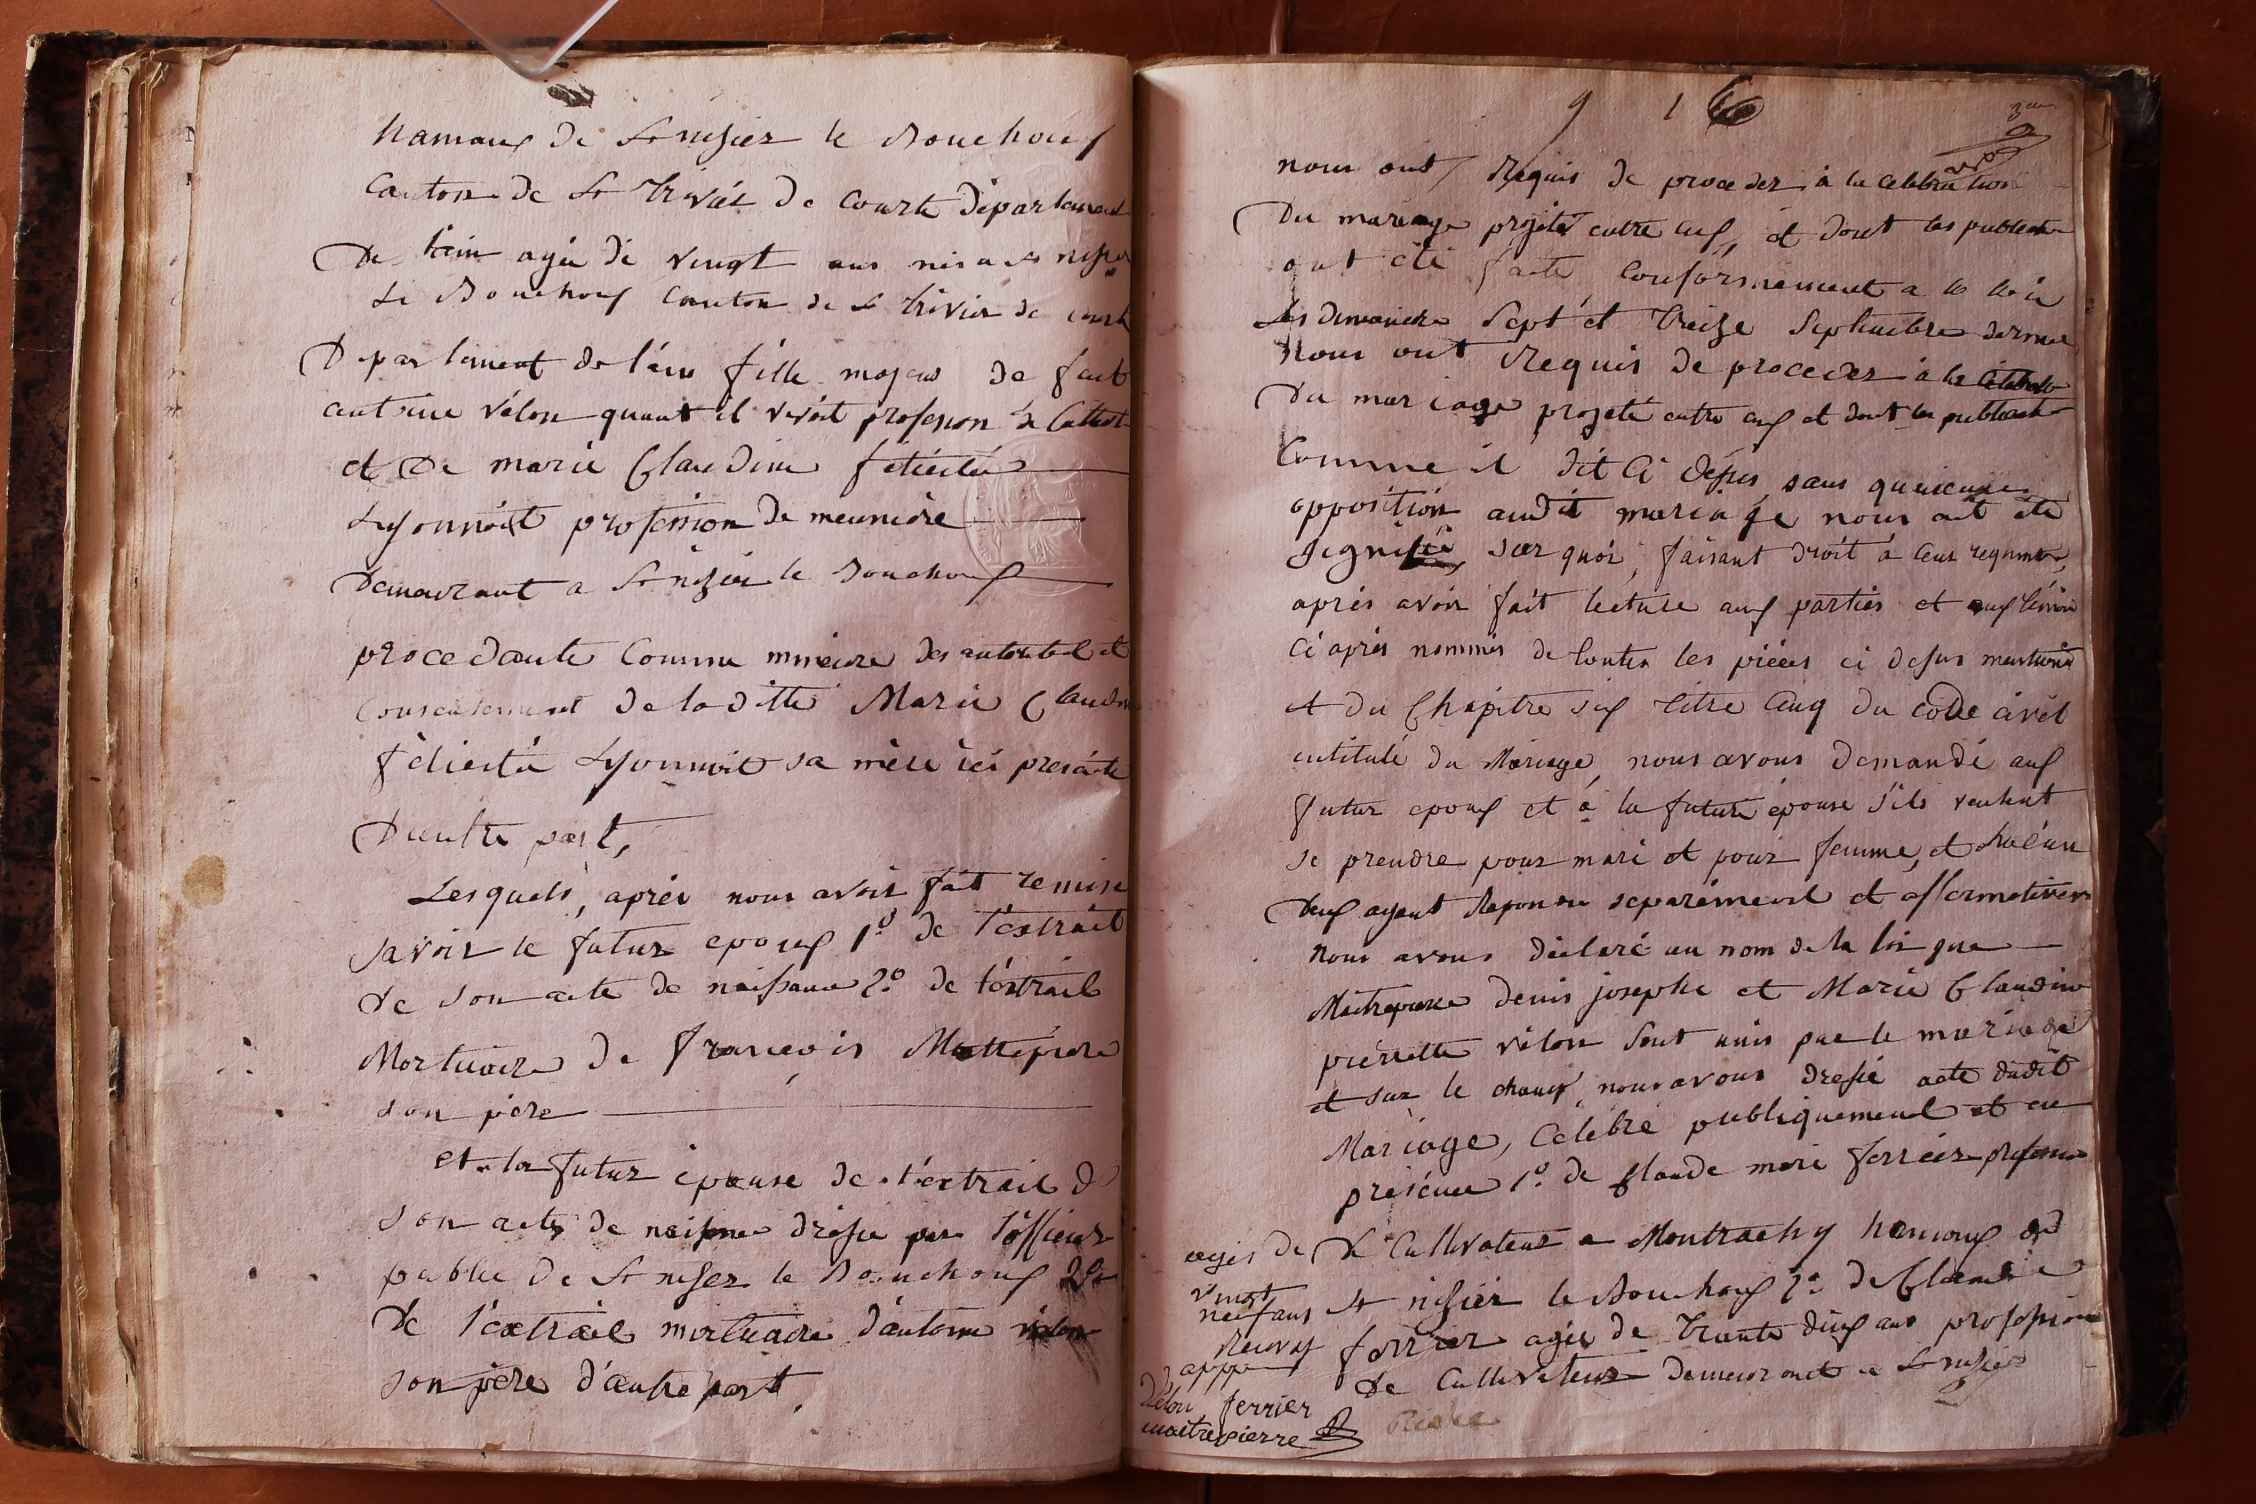 hamaux de St nisier le Bouchoux
Canton de St Trivier de Courte département
De l'ain agée de vingt ans née a St nisier
Le Bouchoux Canton de St trivier de courte
Departement de l'ain fille majeur de feut
antoine vélon quant il vivoit profession de Cultivat
et De marie Claudine félicitée
Lyonnoit profession De meunière
Demeurant a St nisier le Bouchoux
procedante Comme mineure des autorité et
Consentement de la ditte Marie Claudine
félicitée Lyonnoit sa mère ici presente
D'autre part,
Lesquels, après nous avoir fait remise
savoir le futur epoux 1º de l'extrait
de son acte de naissance 2º de l'extrait
Mortuaire de françois Maitrepierre
son père
et la futur épouse de l'extrait de
son acte de naissance dressé par l'officier
public De St nisier le Bouchoux 2º
De l'extrait mortuaire d'antoine vélon
son père d'autre part.
9 1
nous ont Requis de proceder à la celebration
Du mariage projeté entre eux, et dont les publicat
ont été faite Conformément a la loix
Les dimanche Sept et treize Septembre dernier
Nous ont Requis de proceder à la Celebrat
Du mariage projeté entre eux et dont les publicat
Comme il dit Ci dessus sans qu'aucune
opposition audit mariage nous ait été
signifiée, sur quoi, faisant droit à leur requisition,
après avoir fait lecture aux parties et aux témoins
Ci après nommés de toutes les pièces ci dessus mentionné
et du Chapitre six titre Cinq du code civil
intitulé du Mariage, nous avons demandé aux
futur epoux et à la future épouse s'ils veulent
se prendre pour mari et pour femme, et chacun
deux ayant Reponsu separément et affirmativem
Nous avons déclaré au nom de la loi que
Maitrepierre denis josephe et Marie Claudine
pierrette vélon sont unis par le mariage
et sur le champ, nous avons dressé acte dudit
Mariage, Célébré publiquement et en
présence 1º de Claude marie ferrier profession
agés de De Cultivateur a Montrachy hamaux de
vingt
neuf ans St nisier le Bouchoux 2º De Claude
Renvoy ferrier agée de trente dix ans profession
appr De Cultivateur demeurant a St nisier
vélon ferrier
maitrepierre